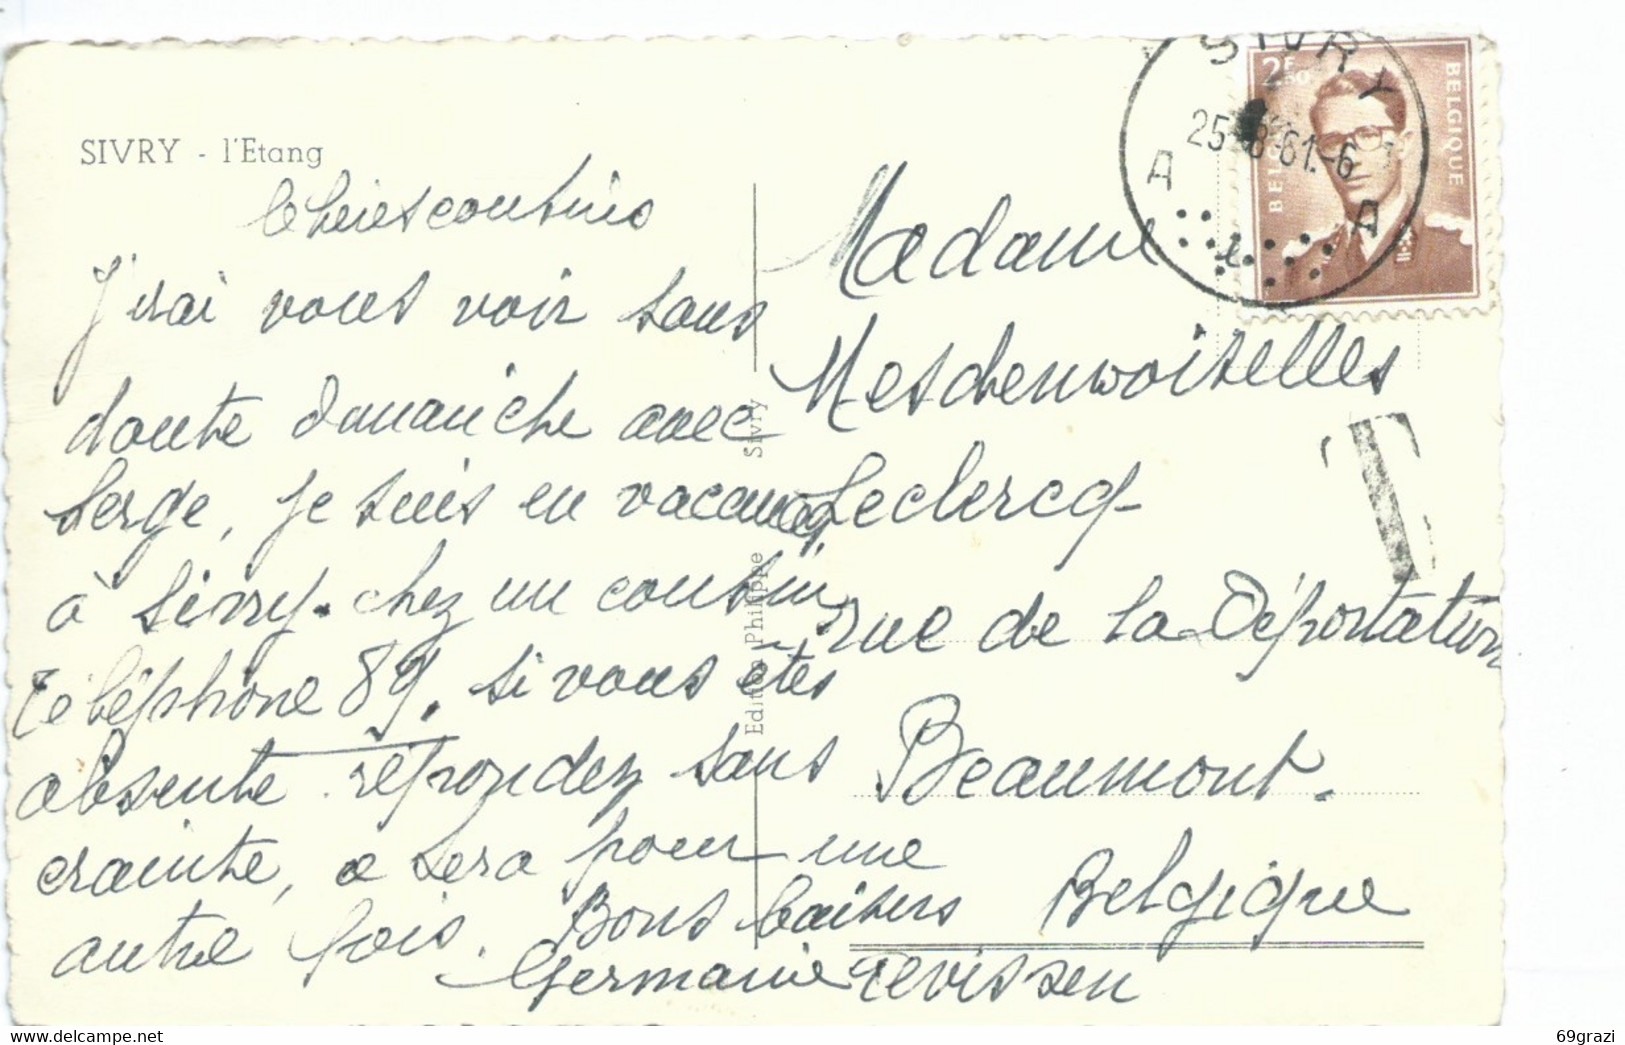 SIVRY - l'Etang
Chères cousines
J'irai vous voir sans
doute dimanche avec
Serge, je suis en vacances
à Sivry. chez un cousin,
Téléphone 89. si vous êtes
absente répondez sans
crainte, ce sera pour une
autre fois. Bons baisers
Germaine Tevissen
Sivry
Edition Philippe
SIVRY
25-8-61.-6
A A
2F50
BELGIQUE
T
Madame
Mesdemoiselles
Leclercq
rue de la Déportation
Beaumont.
Belgique
69grazi